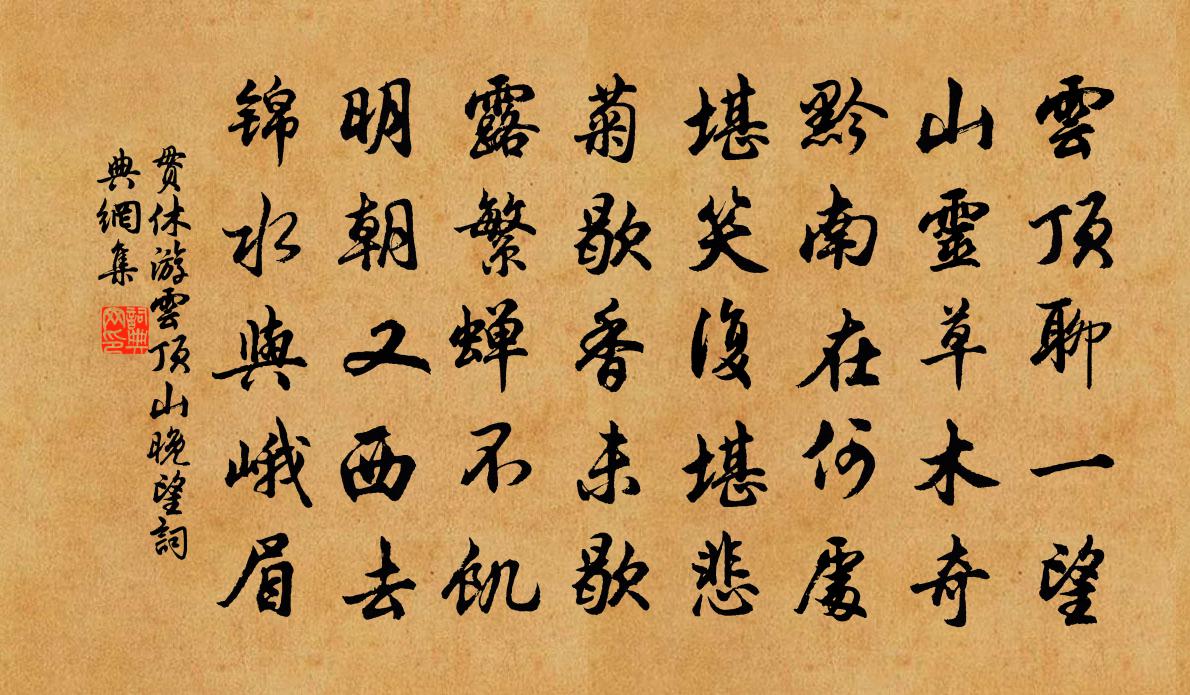 雲頂聊一望
山靈草木奇
黔南在何處
堪笑復堪悲
菊歇香未歇
露繁蝉不飢
明朝又西去
锦水與峨眉
貫休游雲頂山晚望詞
典網集
詞典
网印